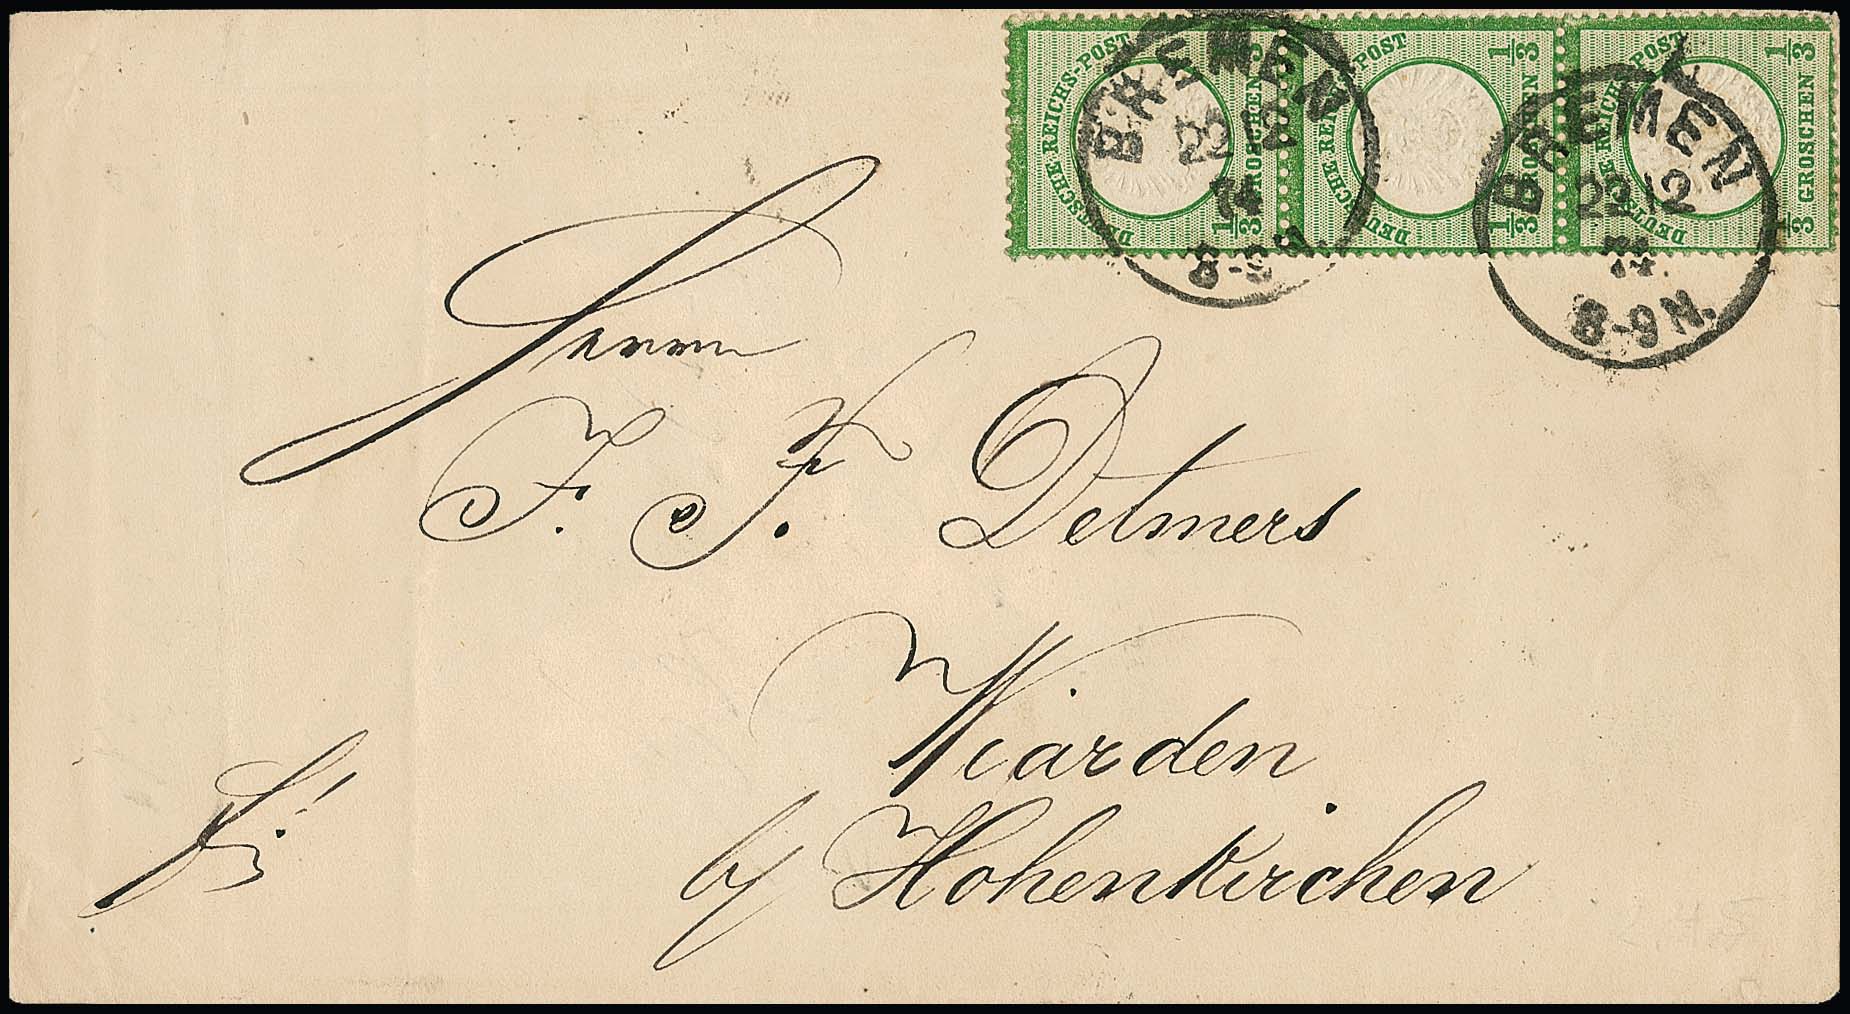 DEUTSCHE REICHS-POST 1/3 GROSCHEN 1/3
DEUTSCHE REICHS-POST 1/3 GROSCHEN 1/3
DEUTSCHE REICHS-POST 1/3 GROSCHEN 1/3
BREMEN
22 12
74
8-9N.
BREMEN
22 12
74.
8-9N.
Herrn
F. F. Detmers
Wiarden
b/ Hohenkirchen